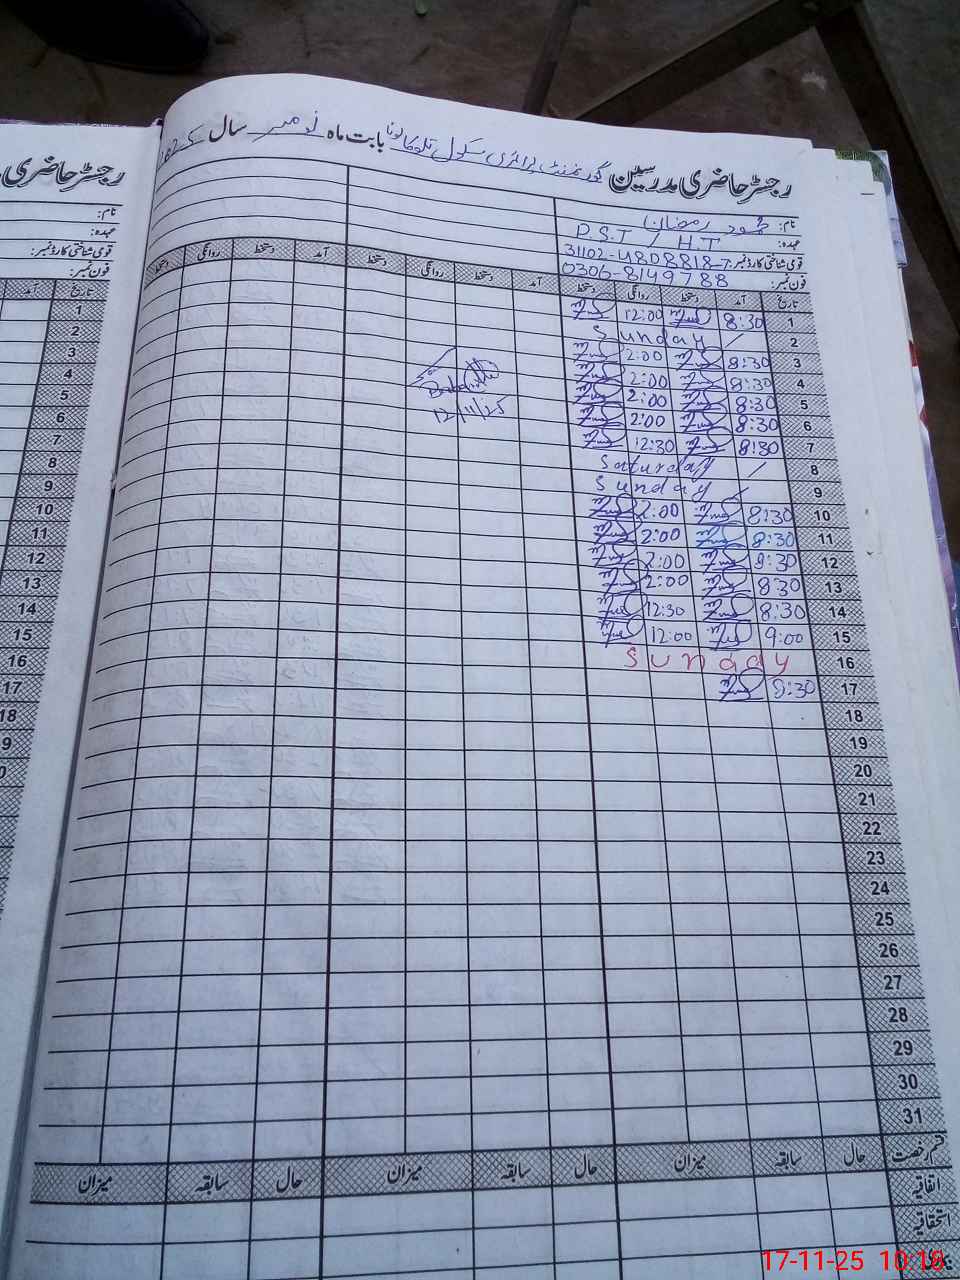 رجسٹر حاضری مدرسین گورنمنٹ پرائمری سکول بابت ماہ نومبر سال 2025
نام: محمود رمضان
عہدہ: P.S.T / H.T
قومی شناختی کارڈ نمبر: 31102-4808818-7
فون نمبر: 0306-8149788
تاریخ آمد دستخط روانگی دستخط آمد دستخط روانگی دستخط آمد دستخط روانگی دستخط
1 8:30 12:00
2 Sunday
3 8:30 2:00
4 8:30 2:00
5 8:30 2:00
6 8:30 2:00
7 8:30 12:30
8 Saturday
9 Sunday
10 8:30 2:00
11 8:30 2:00
12 8:30 2:00
13 8:30 2:00
14 8:30 12:30
15 9:00 12:00
16 Sunday
17 8:30
12/11/25
18
19
20
21
22
23
24
25
26
27
28
29
30
31
قسم رخصت حال سابقہ میزان حال سابقہ میزان حال سابقہ میزان
اتفاقیہ
استحقاقیہ
رجسٹر حاضری
نام:
عہدہ:
قومی شناختی کارڈ نمبر:
فون نمبر:
تاریخ آمد
1
2
3
4
5
6
7
8
9
10
11
12
13
14
15
16
17
18
17-11-25 10:18